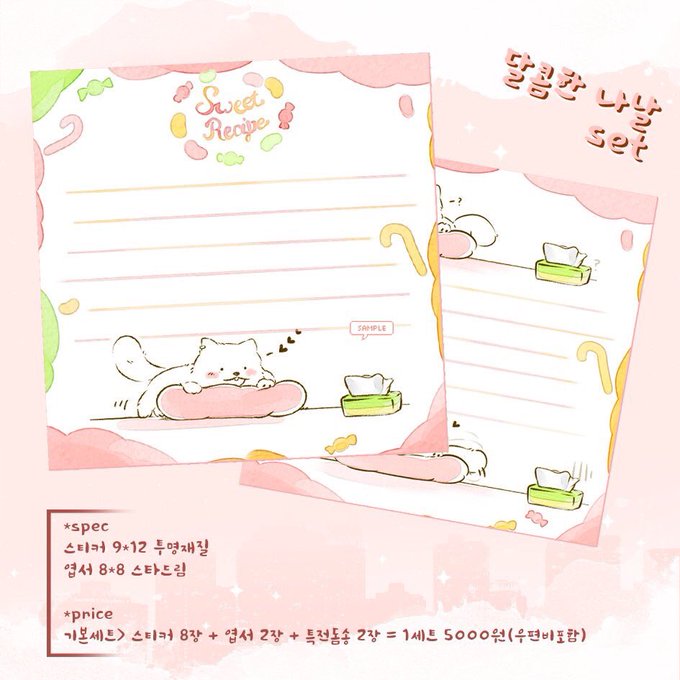 달콤한 나날
set
Sweet
Recipe
-?
?
SAMPLE
*spec
스티커 9*12 투명재질
엽서 8*8 스타드림
*price
기본세트> 스티커 8장 + 엽서 2장 + 특전돔송 2장 = 1세트 5000원(우편비포함)